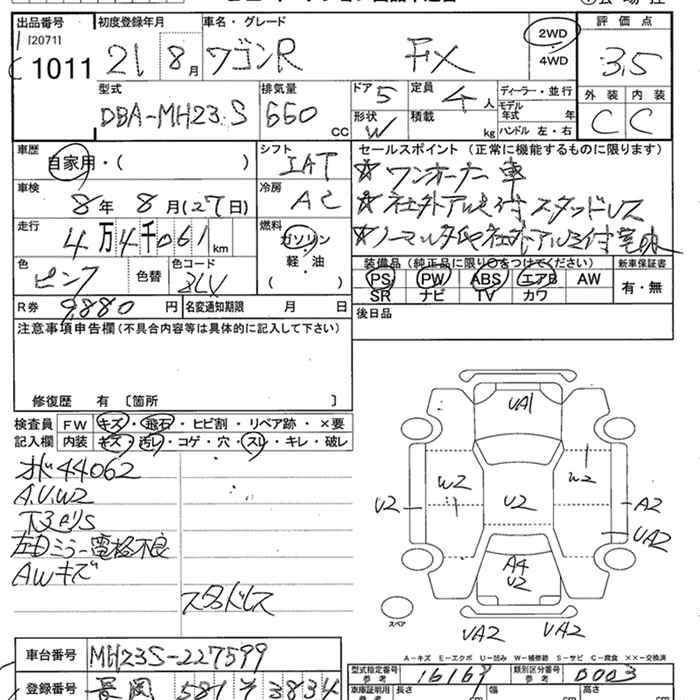 出品番号 初度登録年月 車名・グレード 評価点
[2071]
1011 21 8月 ワゴンR FX 2WD ・4WD 3.5
型式 排気量 ドア 5 定員 4人 ディーラー・並行 外装 内装
DBA-MH23S 660 CC 形状 W 積載 kg モデル年式 年 ハンドル 左・右 C C
車歴 自家用・( ) シフト IAT セールスポイント (正常に機能するものに限ります)
☆ワンオーナー車
車検 8年 8月(27日) 冷房 AC
☆社外アルミ付 スタッドレス
走行 4万4千061km 燃料 ガソリン・軽・油 ( )
☆ノーマルタイヤ社外アルミ付
色 ピンク 色替 色コード
装備品 (純正品に限り○をつけてください) 新車保証書
PS PW ABS エアB AW 有・無
SR ナビ TV カワ
R券 9,880円 名変通知期限 月 日
後日品
注意事項申告欄 (不具合内容等は具体的に記入して下さい)
修復歴 有 〔箇所 〕
検査員 FW キズ・飛石・ヒビ割・リペア跡・×要
記入欄 内装 キズ・汚レ・コゲ・穴・スレ・キレ・破レ
オド44062
A.U.W2
下回りS
左Dミラー電格不良
AWキズ
スタッドレス
UA1
W2 W2
U2 U2 A2
UA2
A4
U2
スペア
UA2 UA2
A-キズ E-エクボ U-凹み W-補修跡 S-サビ C-腐食 ××-交換済
車台番号 MH23S-227599
型式指定番号 参考 16167 類別区分番号 参考 0003
登録番号 長岡 581 そ 3834
車庫証明用 参考 長さ cm 幅 cm 高さ cm